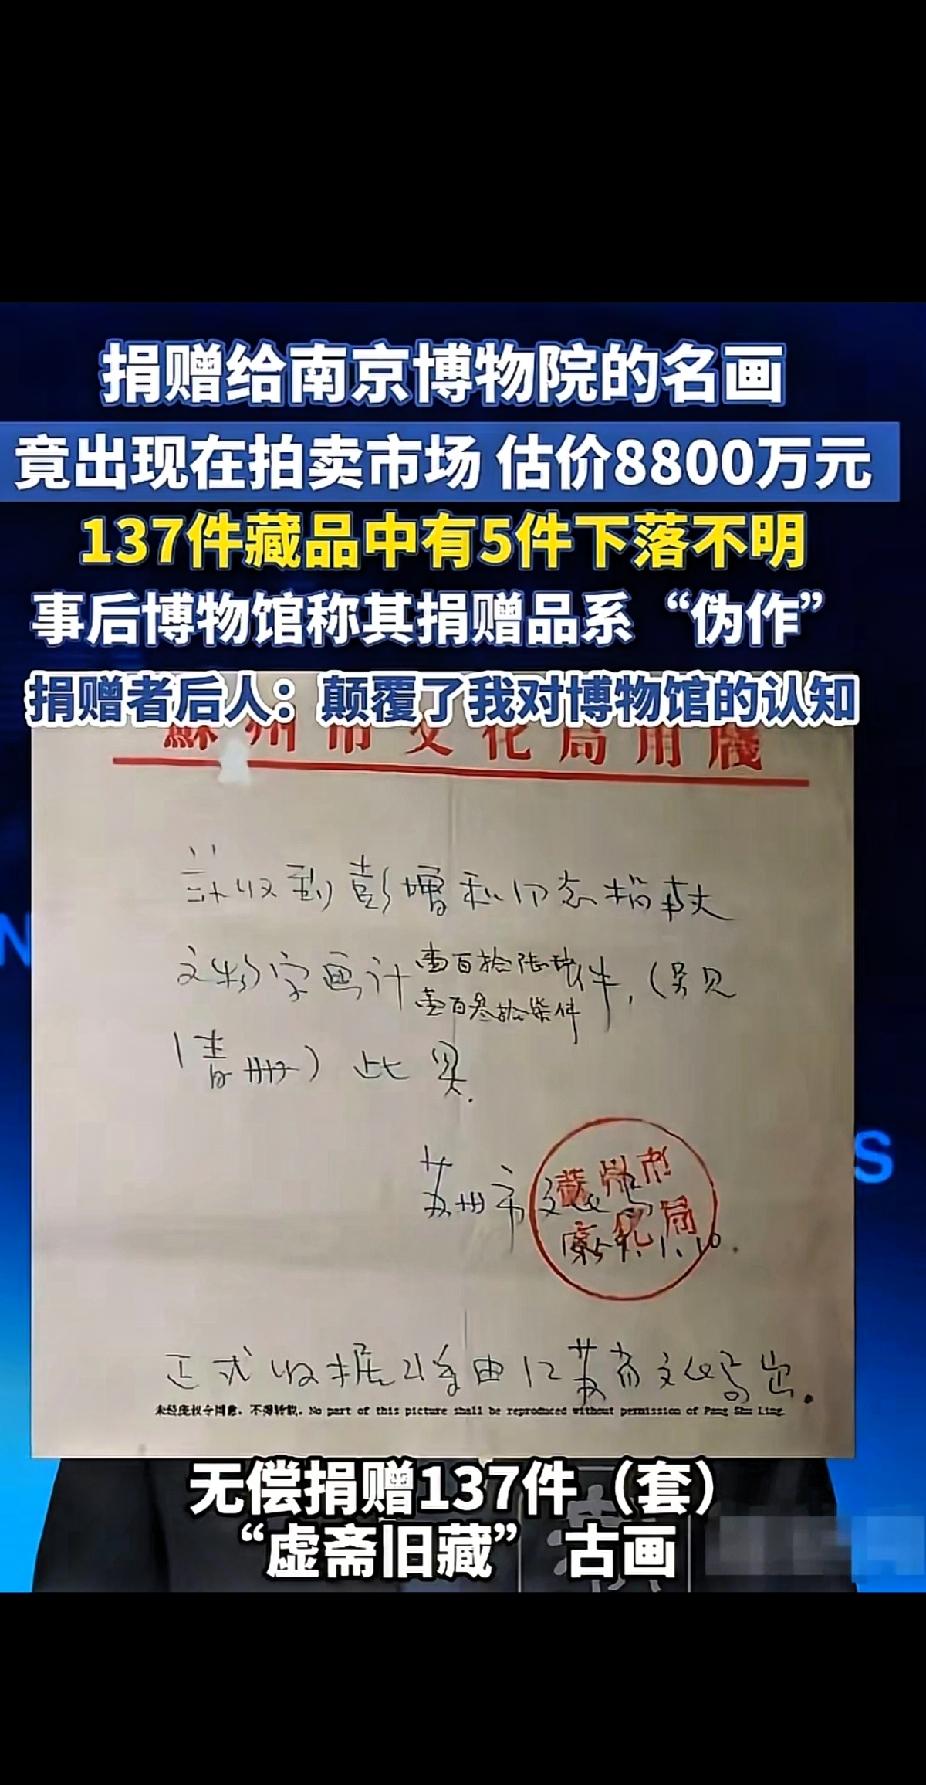 捐赠给南京博物院的名画
竟出现在拍卖市场 估价8800万元
137件藏品中有5件下落不明
事后博物馆称其捐赠品系“伪作”
捐赠者后人：颠覆了我对博物馆的认知
蘇州市文化局用牋
兹收到彭增和同志捐献
文物字画计
壹百拾陆种
壹百叁拾柒件
件，（另见
清册）此具。
苏州市文化局
蘇州市
文化局
59.1.10.
正式收据将由江苏省文化局出。
未经庞叔令同意，不得转载。No part of this picture shall be reproduced without permission of Pang Shu Ling
无偿捐赠137件（套）
“虚斋旧藏” 古画
N
S